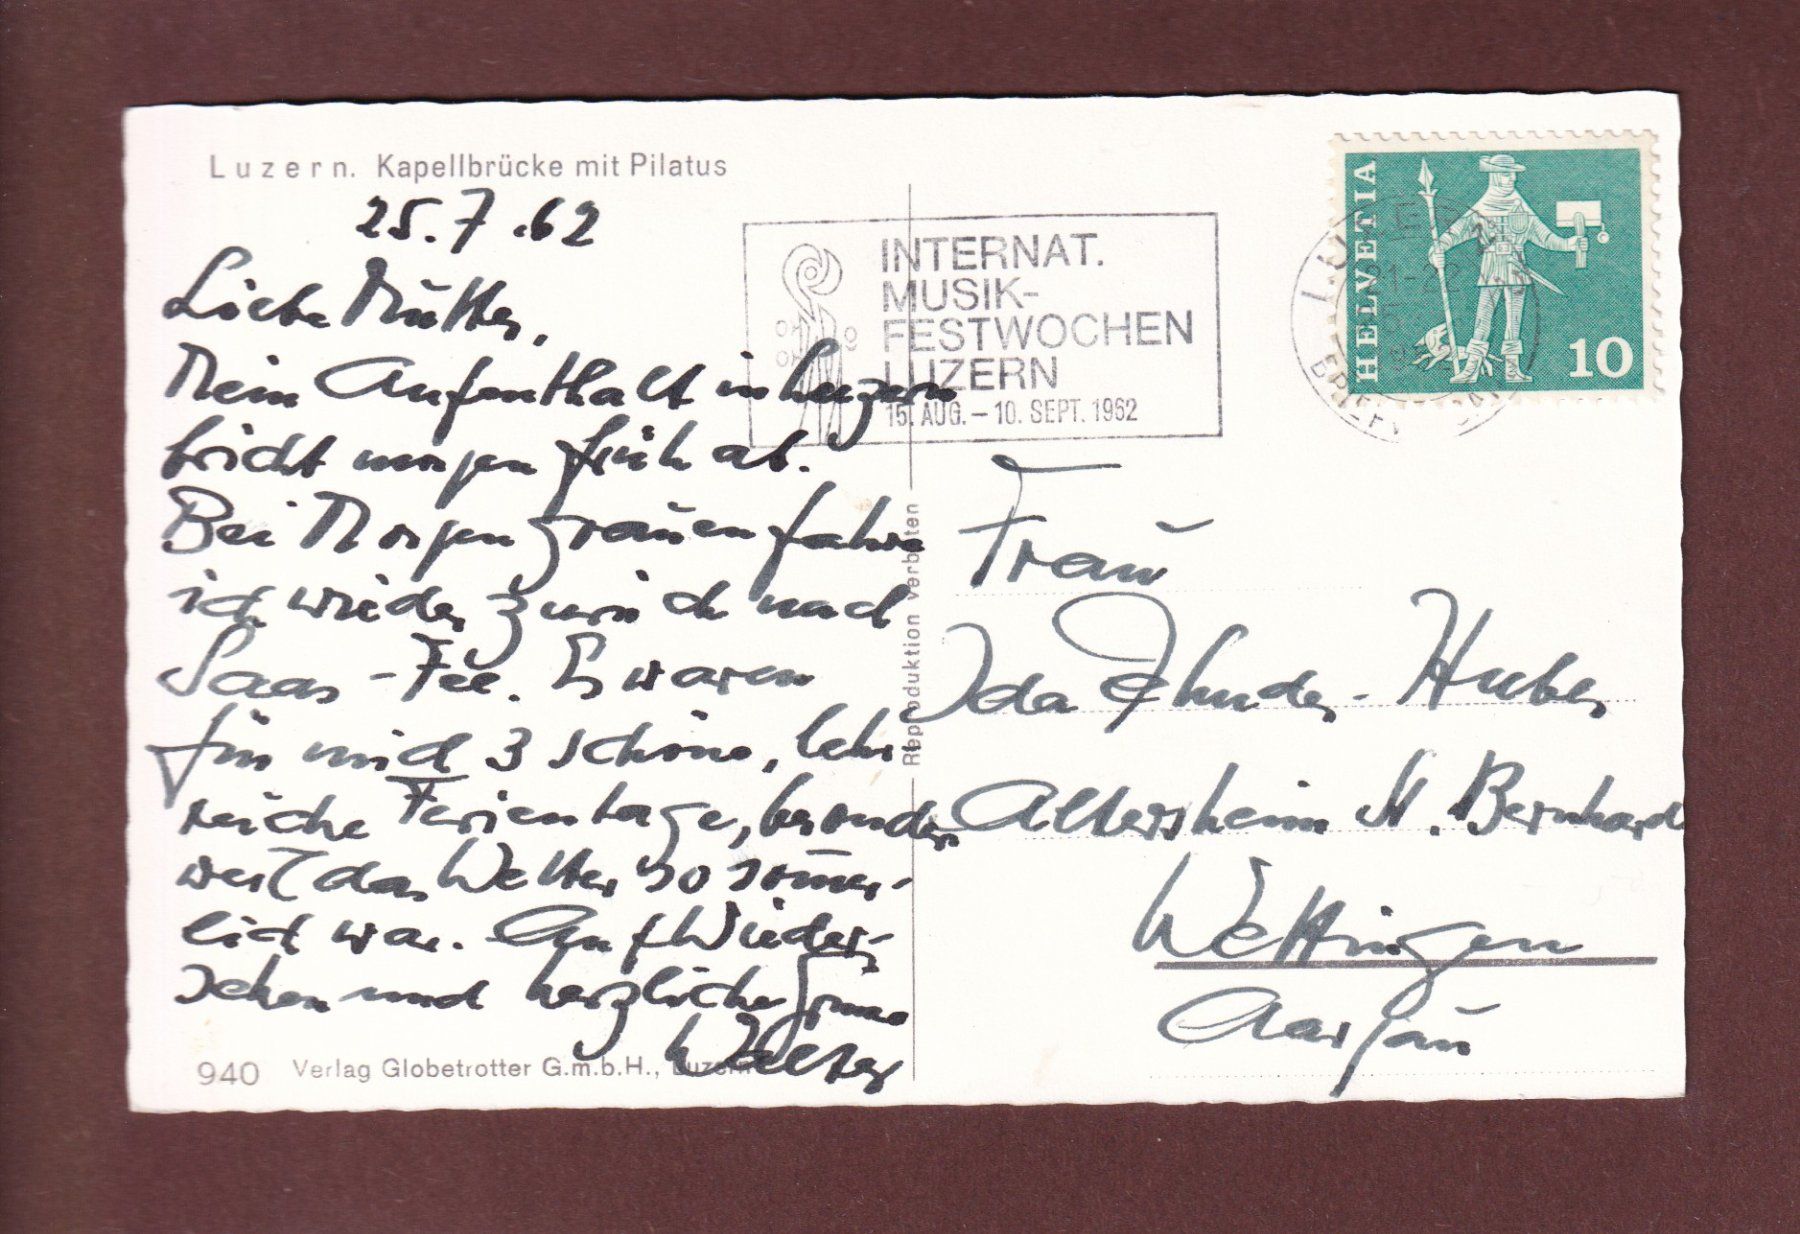 Luzern. Kapellbrücke mit Pilatus
25.7.62
Liebe Mutter,
Mein Aufenthalt in Luzern
bricht morgen früh ab.
Bei Morgengrauen fahre
ich wieder zurück nach
Saas-Fee. Es waren
für mich 3 schöne, lehr
reiche Ferientage, besonders
weil das Wetter so som̄er-
lich war. Auf Wieder-
sehen und herzliche Grüsse
Walter
940 Verlag Globetrotter G.m.b.H., Luzern
Reproduktion verboten
INTERNAT.
MUSIK-
FESTWOCHEN
LUZERN
15. AUG. – 10. SEPT. 1962
HELVETIA
10
Frau
Ida Zehnder-Huber
Altersheim St. Bernhard
Wettingen
Aargau